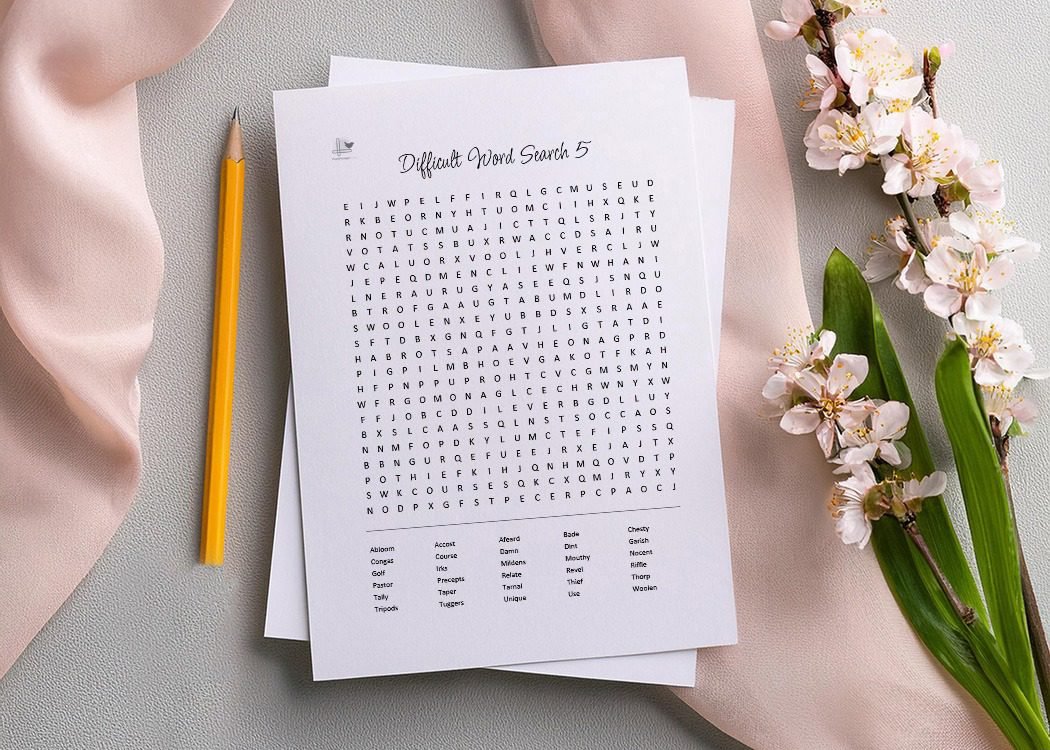 Difficult Word Search 5
E I J W P E L F F I R Q L G C M U S E U D
R K B E O R N Y H T U O M C I I H X Q K E
R N O T U C M U A J I C T T Q L S R J T Y
V O T A T S S B U X R W A C C D S A I R U
W C A L U O R X V O O L J H V E R C L J W
J E P E Q D M E N C L I E W F N W H A N I
L N E R A U R U G Y A S E E Q S J S N Q U
B T R O F G A A U G T A B U M D L I R D O
S W O O L E N X E Y U B B D S X S R A A E
S F T D B X G N Q F G T J L I G T A T D I
H A B R O T S A P A A V H E O N A G P R D
P I G P I L M B H O E V G A K O T F K A H
H F P N P P U P R O H T C V C G M S M Y N
W F R G O M O N A G L C E C H R W N Y X W
F F J O B C D D I L E V E R B G D L L U Y
B X S L C A A S S Q L N S T S O C C A O S
N N M F O P D K Y L U M C T E F I P S S Q
B B N G U R Q E F U E E J R X E J A J T X
P O T H I E F K I H J Q N H M Q O V D T P
S W K C O U R S E S Q K C X Q M J R Y X Y
N O D P X G F S T P E C E R P C P A O C J
Abloom Accost Afeard Bade Chesty
Congas Course Damn Dint Garish
Golf Irks Mildens Mouthy Nocent
Pastor Precepts Relate Revel Riffle
Tally Taper Tarnal Thief Thorp
Tripods Tuggers Unique Use Woolen